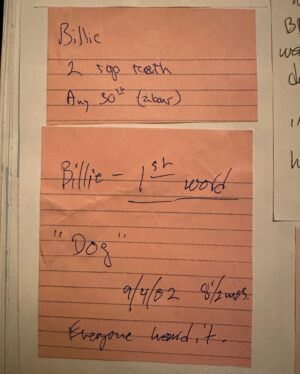 Billie
2 top teeth
Aug 30th (about)
Billie - 1st word
"Dog"
9/4/02 8 1/2 mos.
Everyone heard it.
B
we
d
"
h